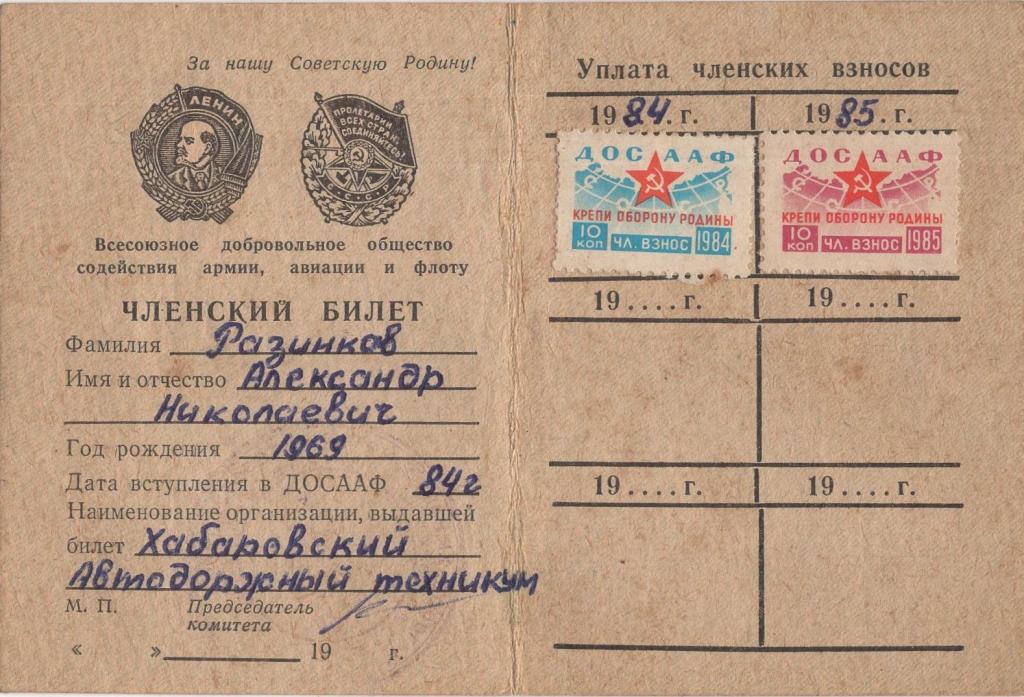 За нашу Советскую Родину!
ЛЕНИН
ПРОЛЕТАРИИ
ВСЕХ СТРАН,
СОЕДИНЯЙТЕСЬ!
СССР
Всесоюзное добровольное общество
содействия армии, авиации и флоту
ЧЛЕНСКИЙ БИЛЕТ
Фамилия Разинков
Имя и отчество Александр
Николаевич
Год рождения 1969
Дата вступления в ДОСААФ 84г
Наименование организации, выдавшей
билет Хабаровский
Автодоржный техникум
М. П. Председатель
комитета
« » 19 г.
Уплата членских взносов
1984. г. 1985. г.
ДОСААФ
КРЕПИ ОБОРОНУ РОДИНЫ
10 КОП ЧЛ. ВЗНОС 1984
ДОСААФ
КРЕПИ ОБОРОНУ РОДИНЫ
10 КОП ЧЛ. ВЗНОС 1985
19....г. 19....г.
19....г. 19....г.